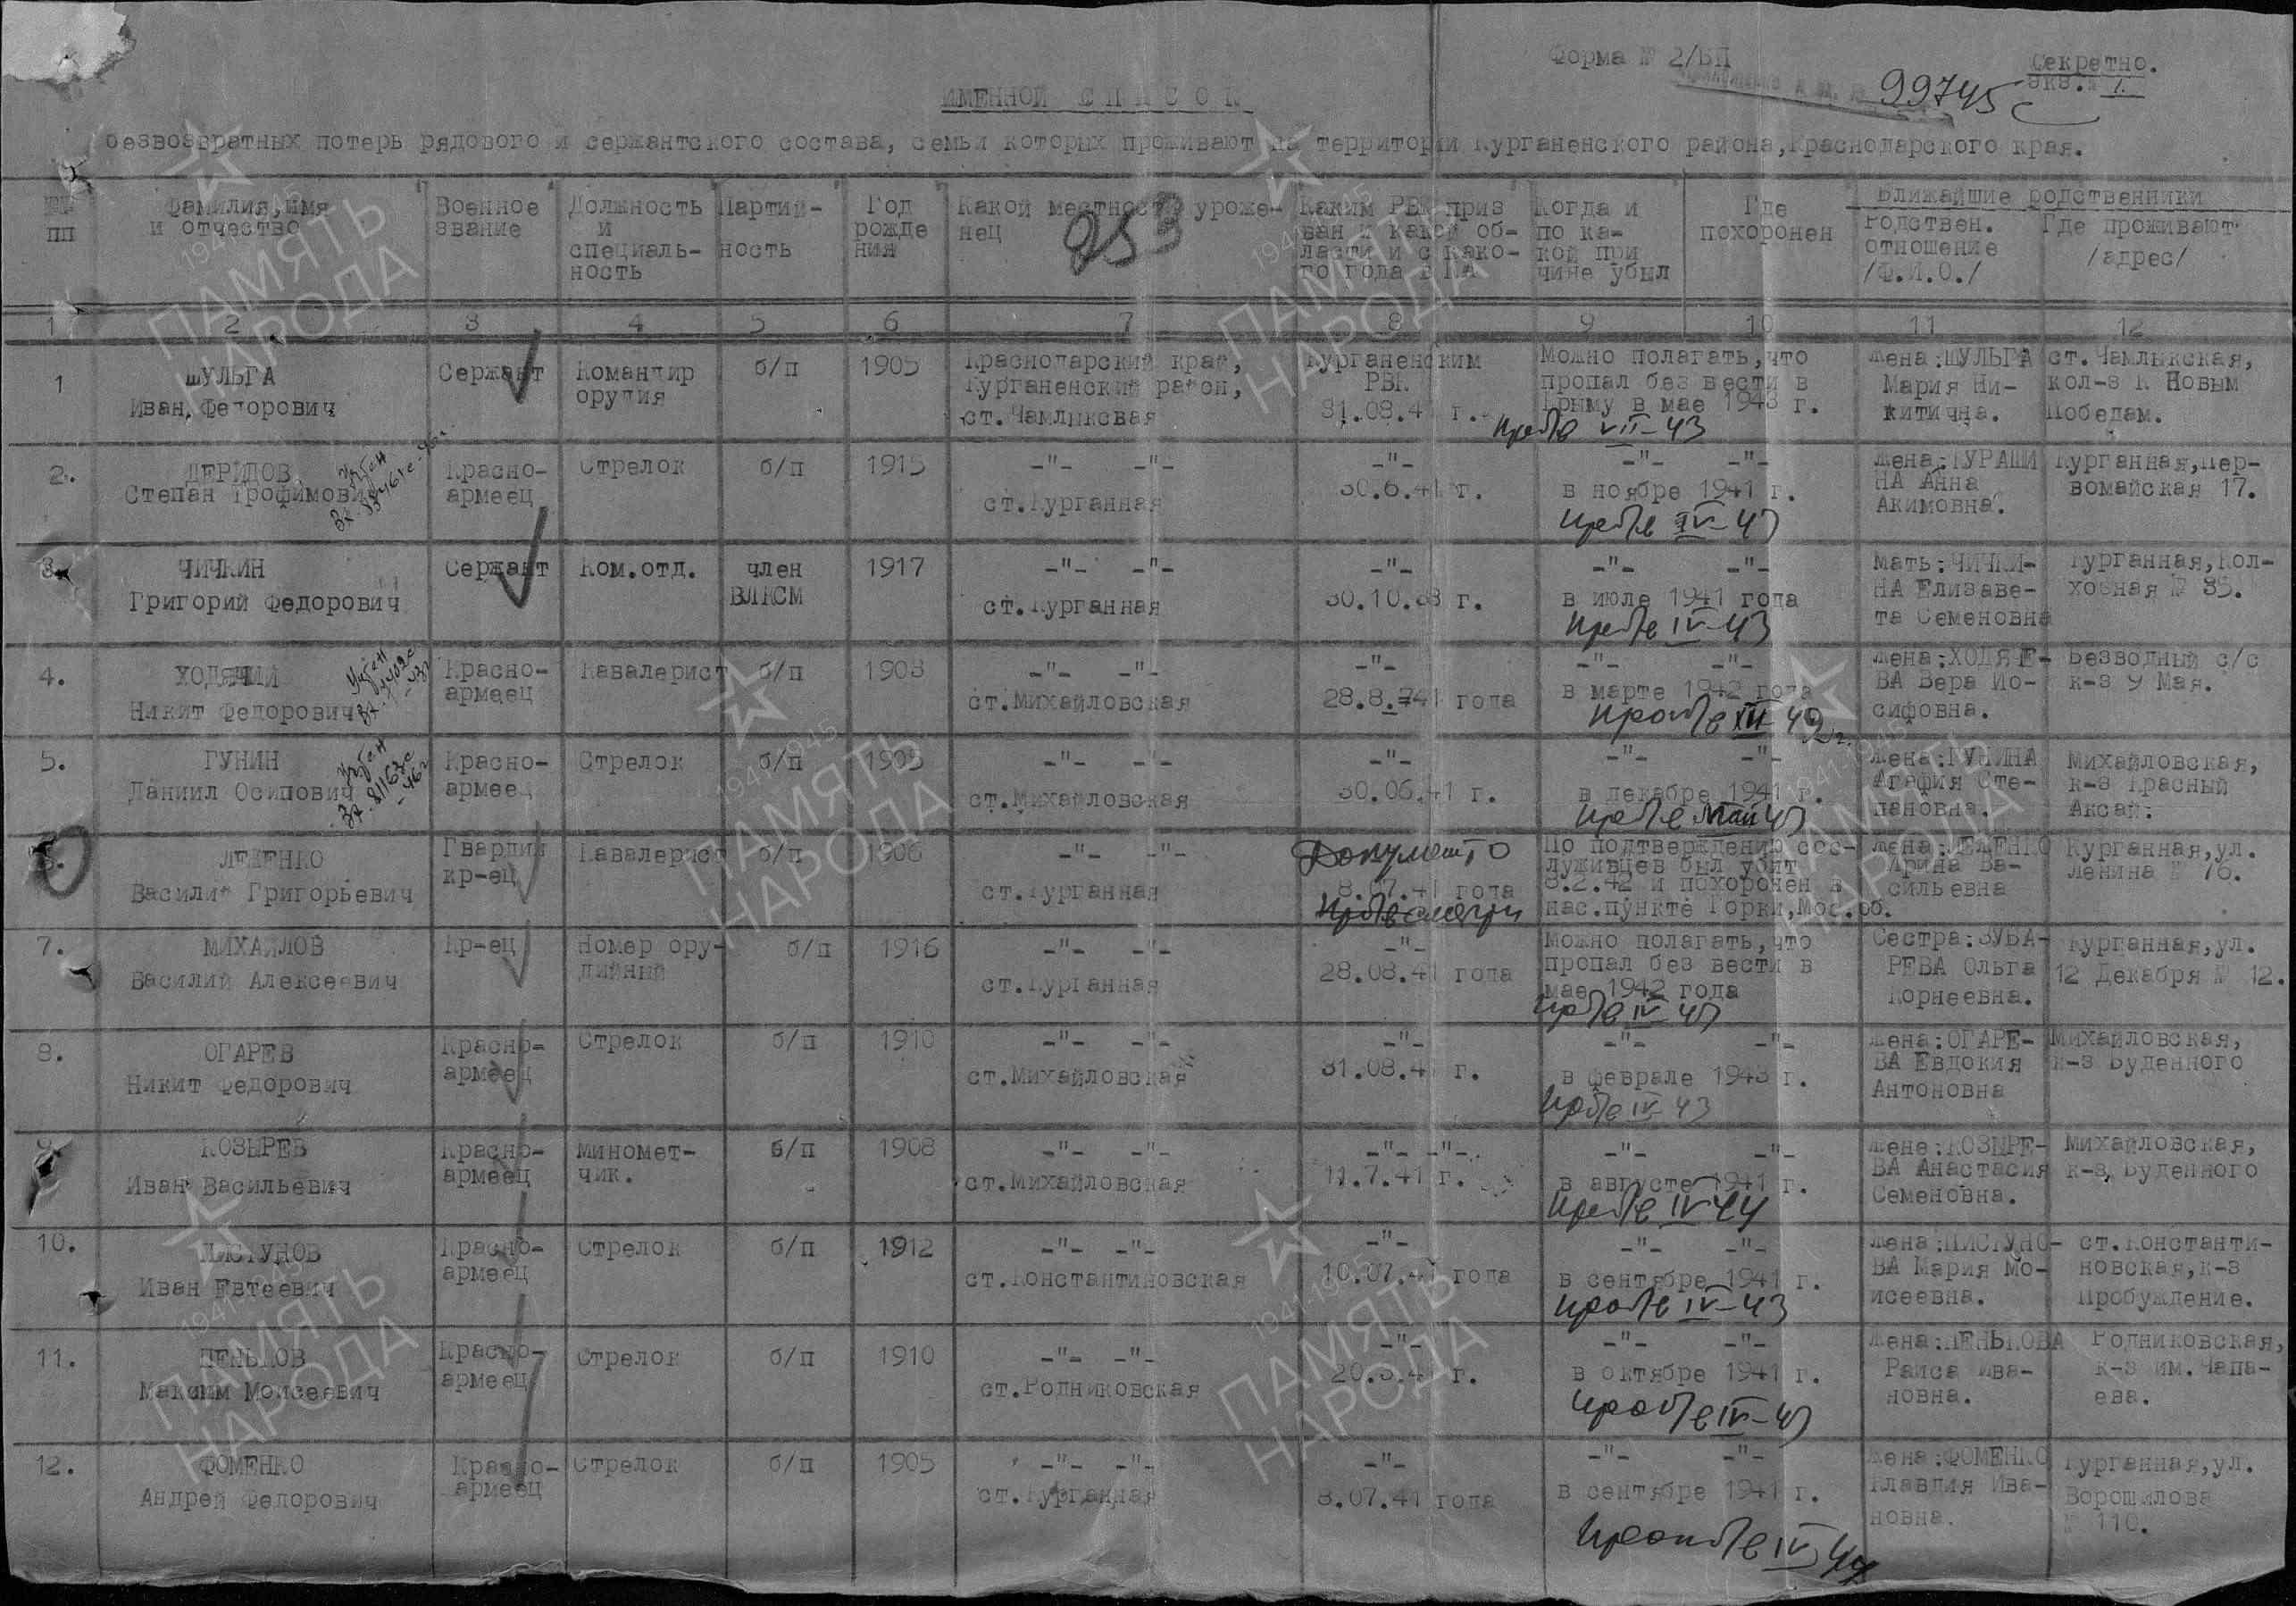 Форма № 2/БП
Секретно.
экз.№ 1.
99745с
ИМЕННОЙ СПИСОК
безвозвратных потерь рядового и сержантского состава, семьи которых проживают на территории Курганенского района,Краснодарского края.
253
№№ пп
Фамилия,имя и отчество
Военное звание
Должность и специаль-ность
Партий-ность
Год рожде ния
Какой местности уроже-нец
Каким РВК приз ван и какой об-ласти и с како-го года в КА
Когда и по ка-кой при чине убыл
Где похоронен
Ближайшие родственники
Родствен. отношение /Ф.И.О./
Где проживают /адрес/
1 2 3 4 5 6 7 8 9 10 11 12
1
ШУЛЬГА
Иван Федорович
Сержант
Командир
орудия
б/п
1905
Краснодарский край,
Курганенский район,
ст.Чамлыксвая
Курганенским
РВК
31.08.41 г.
Можно полагать,что
пропал без вести в
Крыму в мае 1943 г.
пр б/в VII-43
жена:ШУЛЬГА
Мария Ни-
китична.
ст.Чамлыкская,
кол-з К Новым
Победам.
2.
ДЕРИДОВ
Степан Трофимович
Убит
Красно-
армеец
Стрелок
б/п
1915
-"- -"-
ст.Курганная
-"-
30.6.41 г.
-"- -"-
в ноябре 1941 г.
проб/в IV-43
жена:КУРАШИ
НА Анна
Акимовна.
Курганная,Пер-
вомайская 17.
3.
ЧИЧКИН
Григорий Федорович
Сержант
Ком.отд.
член
ВЛКСМ
1917
-"- -"-
ст.Курганная
-"-
30.10.38 г.
-"- -"-
в июле 1941 года
проб/в IV-43
мать:ЧИЧКИ-
НА Елизаве-
та Семеновна
Курганная,Кол-
хозная № 35.
4.
ХОДЯЧИЙ
Никит Федорович
Убит
Красно-
армеец
Кавалерист
б/п
1903
-"- -"-
ст.Михайловская
-"-
28.8.41 года
-"- -"-
в марте 1942 года
проп б/в XII-42г.
жена:ХОДЯЧЕ-
ВА Вера Ио-
сифовна.
Безводный с/с
к-з 9 Мая.
5.
ГУНИН
Даниил Осипович
Убит
Красно-
армеец
Стрелок
б/п
1905
-"- -"-
ст.Михайловская
-"-
30.06.41 г.
-"- -"-
в декабре 1941 г.
проб/в май 43
жена:ГУНИНА
Агафия Сте-
пановна.
Михайловская,
к-з Красный
Аксай.
6.
ЛЕЖЕНКО
Василий Григорьевич
Гвардии
кр-ец
Кавалерист
б/п
1906
-"- -"-
ст.Курганная
Документ о
8.07.41 года
смерти
По подтверждению сос-
луживцев был убит
8.2.42 и похоронен в
нас.пункте Горки,Мос.об.
жена:ЛЕЖЕНКО
Арина Ва-
сильевна
Курганная,ул.
Ленина № 76.
7.
МИХАЙЛОВ
Василий Алексеевич
Кр-ец
Номер ору-
дийный
б/п
1916
-"- -"-
ст.Курганная
-"-
28.08.41 года
Можно полагать,что
пропал без вести в
мае 1942 года
пр б/в IV-43
Сестра:ЗУБА-
РЕВА Ольга
Корнеевна.
Курганная,ул.
12 Декабря № 12.
8.
ОГАРЕВ
Никит Федорович
Красно-
армеец
Стрелок
б/п
1910
-"- -"-
ст.Михайловская
-"-
31.08.41 г.
-"- -"-
в феврале 1943 г.
проб/в IV-43
жена:ОГАРЕ-
ВА Евдокия
Антоновна
Михайловская,
к-з Буденного
9.
КОЗЫРЕВ
Иван Васильевич
Красно-
армеец
Миномет-
чик.
б/п
1908
-"- -"-
ст.Михайловская
-"- -"-
11.7.41 г.
-"- -"-
в августе 1941 г.
проб/в IV 44
жене:КОЗЫРЕ-
ВА Анастасия
Семеновна.
Михайловская,
к-з Буденного
10.
ПИСТУНОВ
Иван Евтеевич
Красно-
армеец
Стрелок
б/п
1912
-"- -"-
ст.Константиновская
-"-
10.07.41 года
-"- -"-
в сентябре 1941 г.
проп б/в IV-43
жена:ПИСТУНО-
ВА Мария Мо-
исеевна.
ст.Константи-
новская,к-з
Пробуждение.
11.
ПЕНЬКОВ
Максим Моисеевич
Красно-
армеец
Стрелок
б/п
1910
-"- -"-
ст.Родниковская
-"-
-"- -"-
в октябре 1941 г.
проп б/в IV-43
жена:ПЕНЬКОВА
Раиса Ива-
новна.
Родниковская,
к-з им.Чапа-
ева.
12.
ФОМЕНКО
Андрей Федорович
Красно-
армеец
Стрелок
б/п
1905
-"- -"-
ст.Курганная
-"-
8.07.41 года
-"- -"-
в сентябре 1941 г.
проп б/в IV 44
жена:ФОМЕНКО
Клавдия Ива-
новна.
Курганная,ул.
Ворошилова
№ 110.
1941-1945
ПАМЯТЬ
НАРОДА